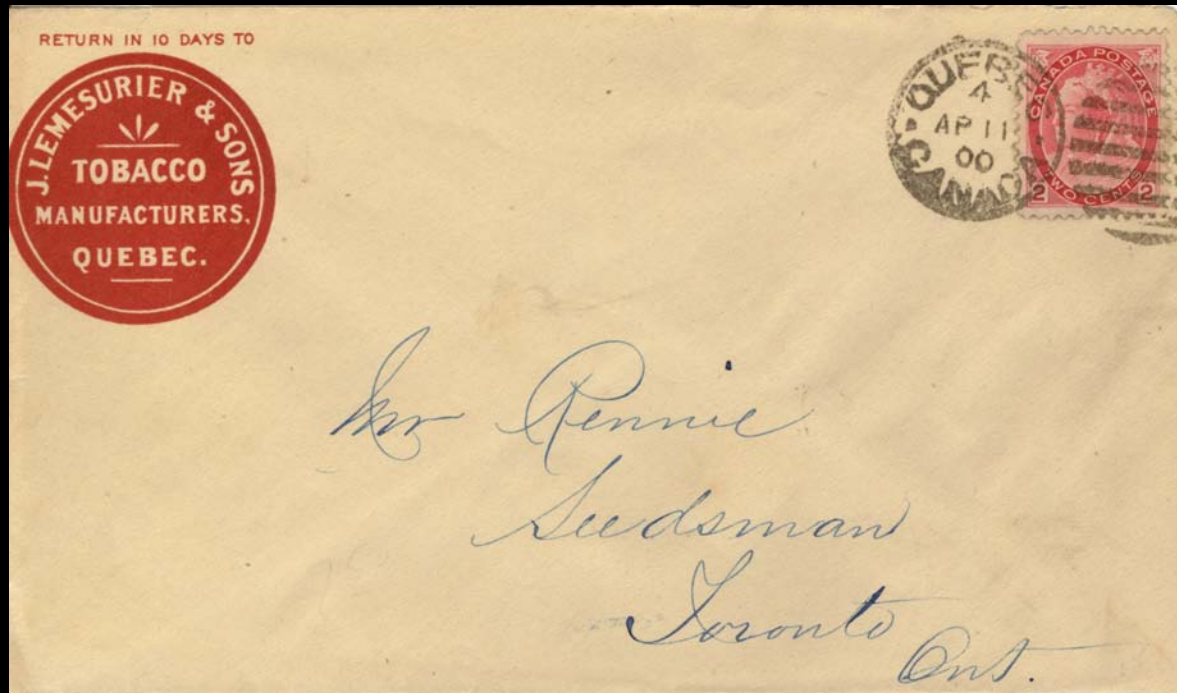 RETURN IN 10 DAYS TO
J. LEMESURIER & SONS
TOBACCO
MANUFACTURERS,
QUEBEC.
QUEBEC
4
AP 11
00
CANADA
CANADA POSTAGE
2 TWO CENTS 2
Mr Rennie
Seedsman
Toronto
Ont.